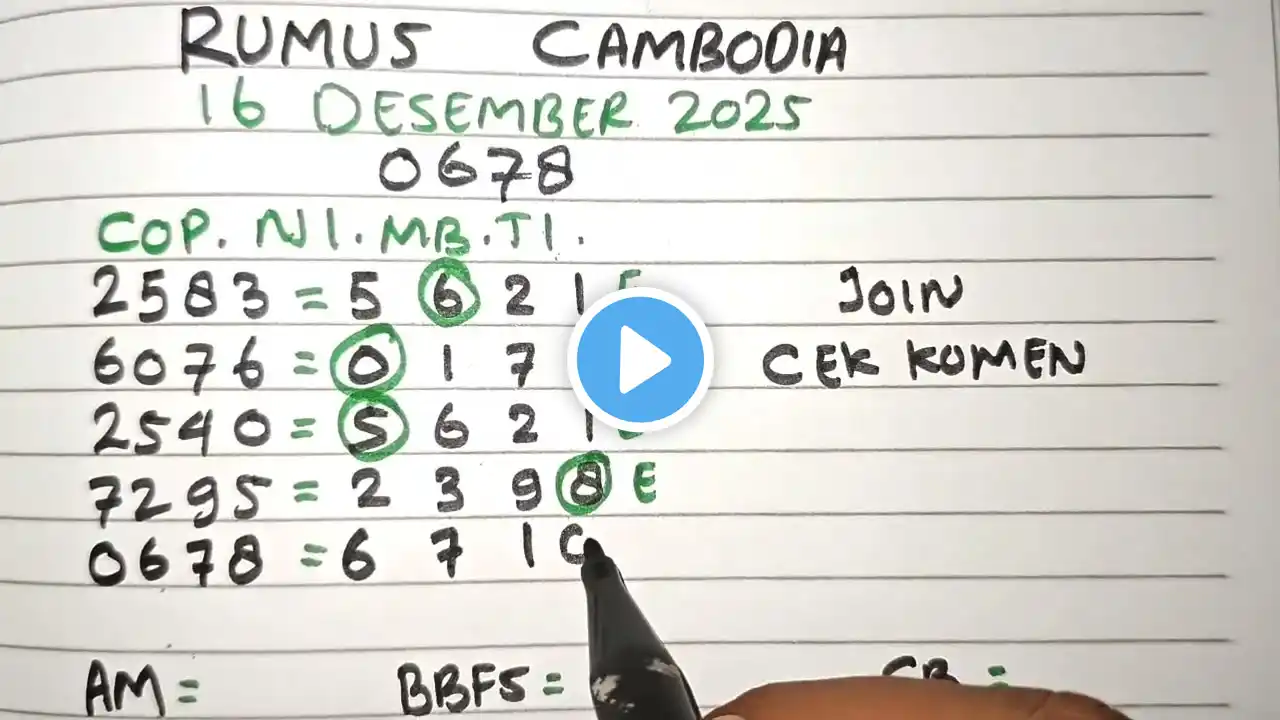 RUMUS CAMBODIA
16 DESEMBER 2025
0678
COP. NI. MB. TI.
2583 = 5 6 2 1
JOIN
6076 = 0 1 7
CEK KOMEN
2540 = 5 6 2 1
7295 = 2 3 9 8 E
0678 = 6 7 1
AM = BBFS = CB =